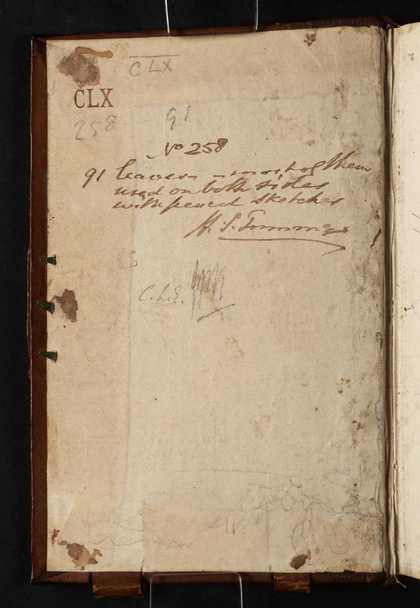 CLX
CLX
258
91
No 258
91 leaves - most of them
used on both sides
with pencil sketches
H. S. Trimmer
C.L.E.